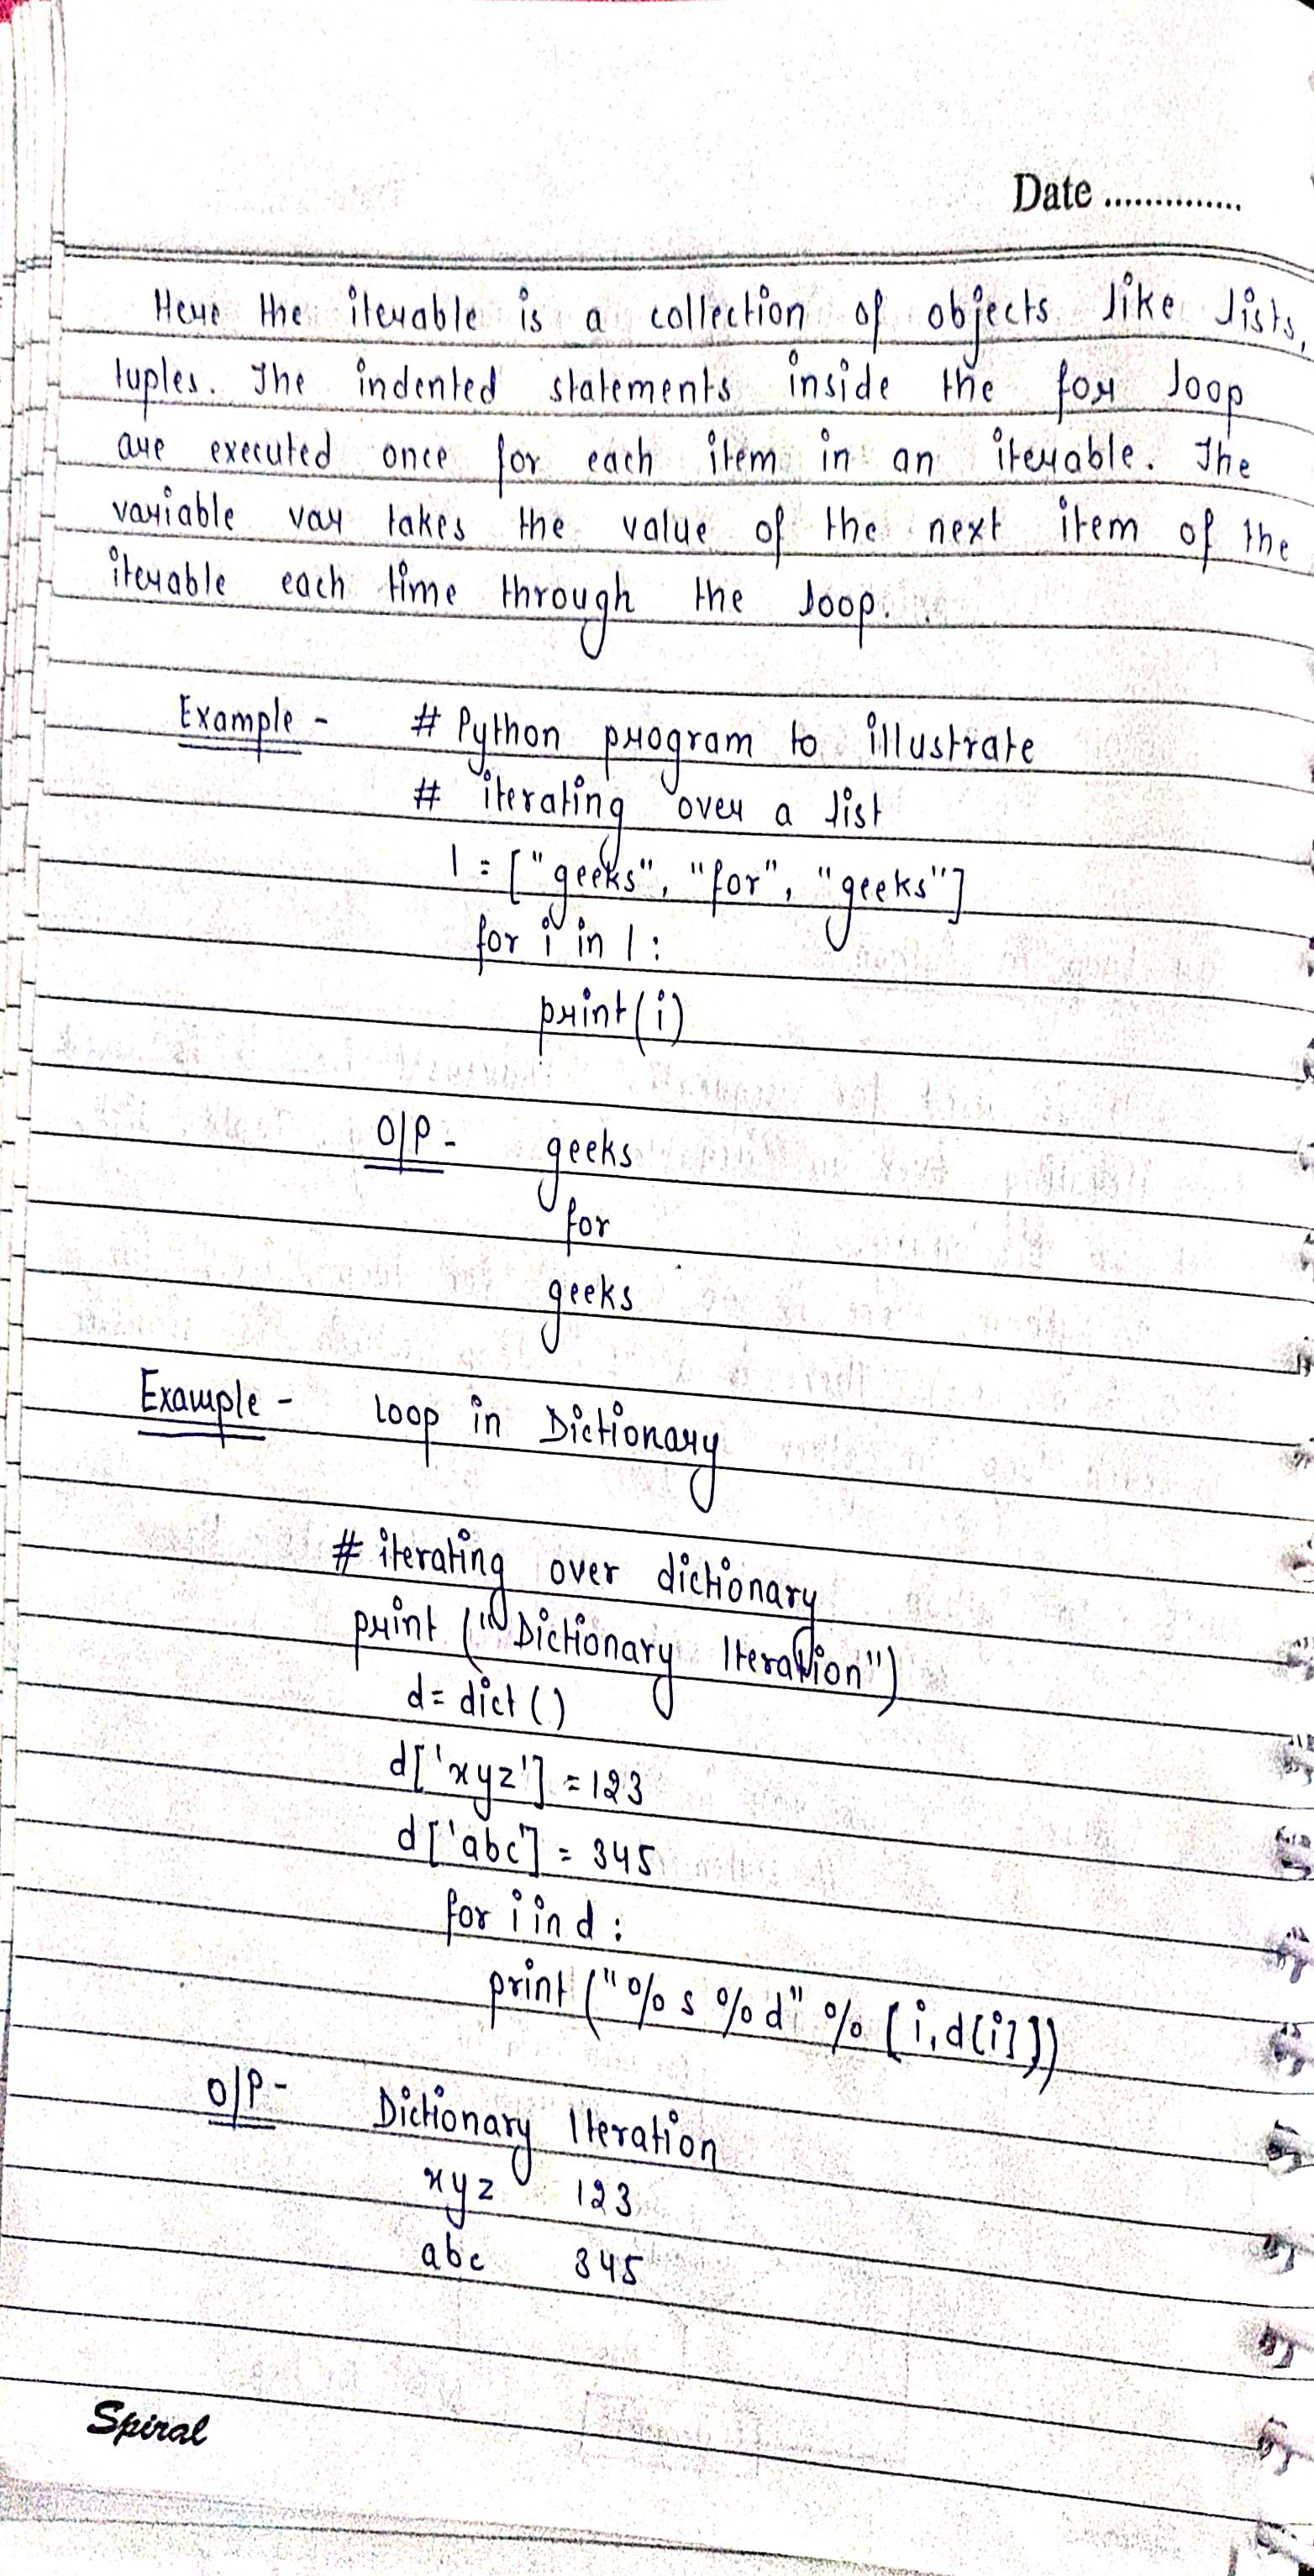 Date ..............
Here the iterable is a collection of objects like lists,
tuples. The indented statements inside the for loop
are executed once for each item in an iterable. The
variable var takes the value of the next item of the
iterable each time through the loop.
Example - # Python program to illustrate
# iterating over a list
l = ["geeks", "for", "geeks"]
for i in l :
print(i)
O/P - geeks
for
geeks
Example - Loop in Dictionary
# iterating over dictionary
print ("Dictionary Iteration")
d = dict ()
d['xyz'] = 123
d['abc'] = 345
for i in d :
print ("%s %d" % [i,d[i]])
O/P - Dictionary Iteration
xyz 123
abc 345
Spiral